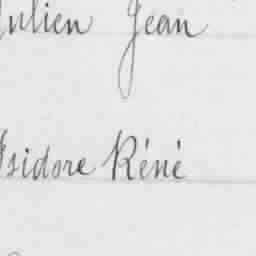 Julien Jean
Isidore Réné